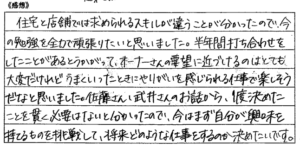 《感想》
住宅と店舗では求められるスキルが違うことが分かったので、今
の勉強を全力で頑張りたいと思いました。半年間打ち合わせを
したことがあるとうかがって、オーナーさんの要望に近づけるのはとても
大変だけれどうまといったときにやりがいを感じられる仕事で楽しそう
だなと思いました。佐藤さん、武井さんのお話から、1度決めた
ことを貫く必要はないと分かったので、今はまず自分が興味を
持てるものを挑戦して、将来どのような仕事をするのか決めたいです。